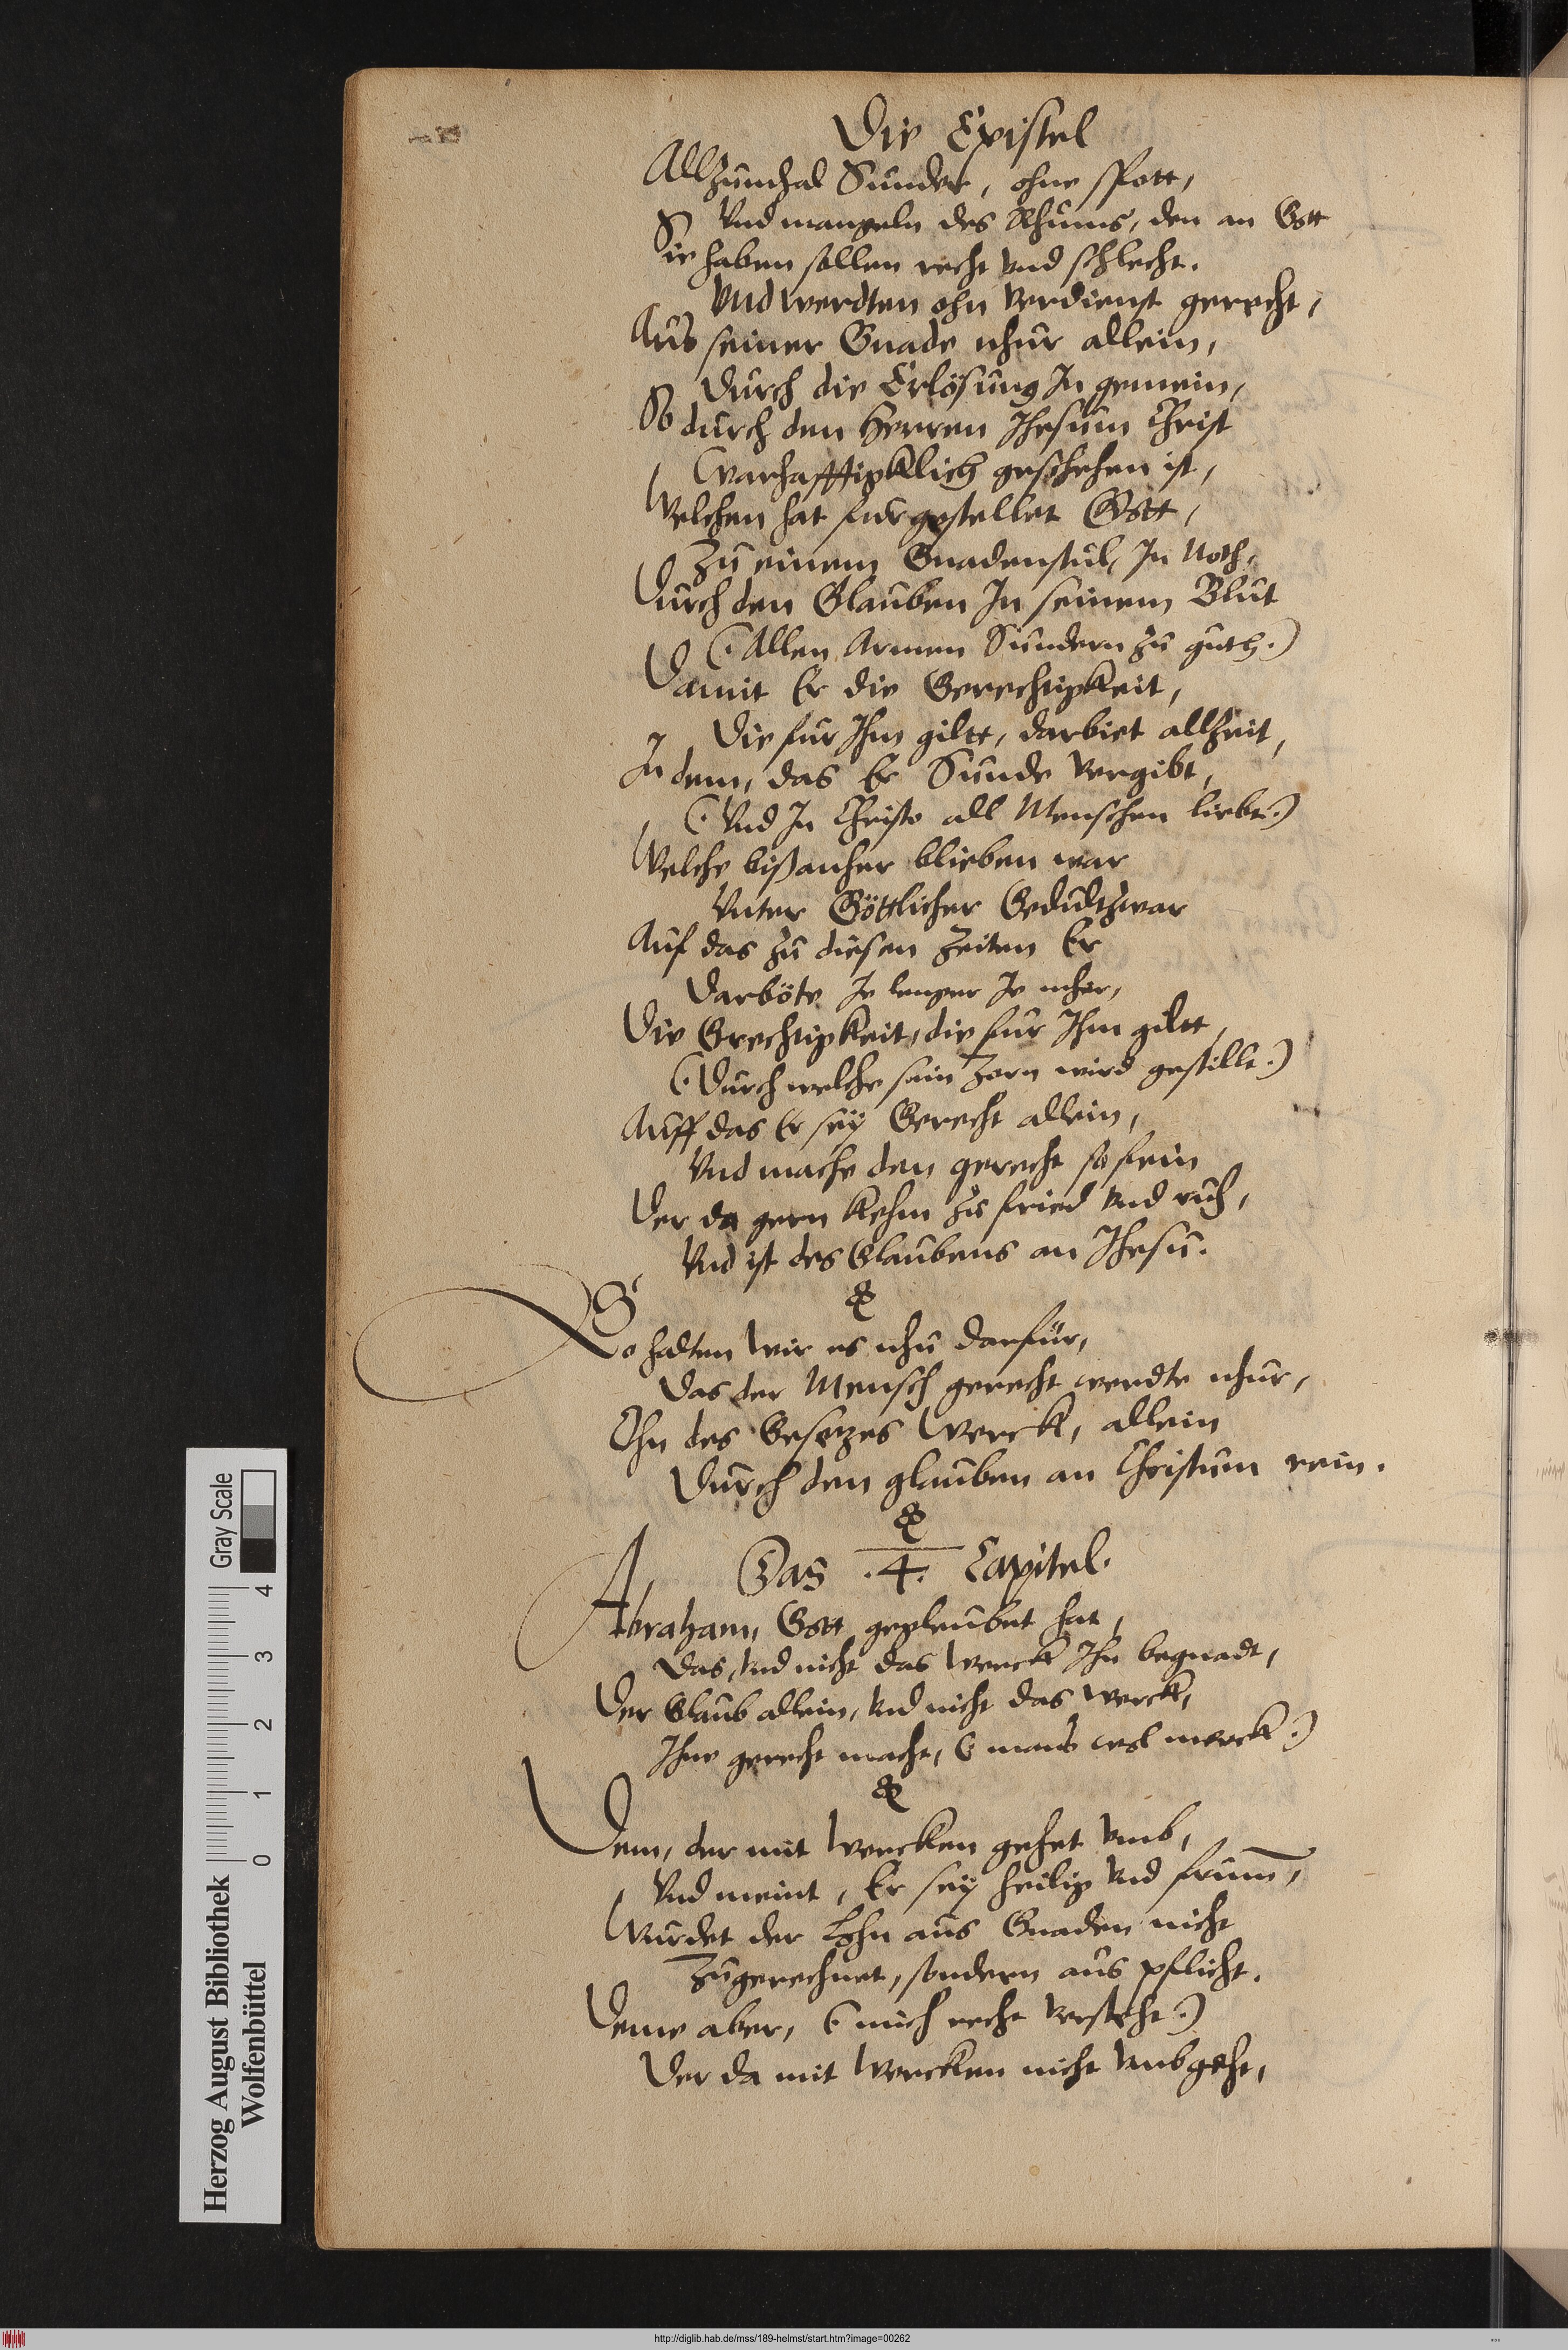 Die Epistel
Allzumhal Sünder, ohne spott,
Vnd mangeln des Rhums, den an Gott
Sie haben sollen recht vnd schlecht.
Vnd werdten ohn verdienst gerecht,
Aus seiner Gnade nhur allein,
Durch die Erlösung In gemein,
So durch den Herren Jhesum Christ
Warhafftigklich geschehen ist,
Welchen hat furgestellet Gott,
Zu einem Gnadenstul, In Noth,
Durch den Glauben In seinem Blut
(: Allen Armen Sundern zu guth.)
Damit Er die Gerechtigkeit,
Die fur Ihm giltt, darbiet allzeit,
In dem, das Er Sunde vergibt,
(: Vnd In Christo all Menschen liebt.)
Welche bißanher blieben war
Vnter Göttlicher Gedult zwar
Auf das zu diesen Zeiten Er
Darböte Je lenger Je mher,
Die Grechtigkeit, die fur Ihm giltt,
(: Durch welche sein Zorn wird gestillt.)
Auff das Er sey Gerecht allein,
Vnd mache den gerecht so fein
Der da gern kehm zu fried vnd ruh,
Vnd ist des Glaubens an Jhesu.
So halten wir es nhu darfür,
Das der Mensch gerecht werdte nhur,
Ohn des Gesetzes Werck, allein
Durch den glauben an Christum rein.
Das .4. Capitel.
Abraham, Gott gegleubet hat,
Das, vnd nicht das Werck Ihn begnadt,
Der Glaub allein, vnd nicht das Werck,
Ihne gerecht macht, (: mans wol merck.)
Dem, der mit Wercken gehet vmb,
Vnd meint, Er sey heilig vnd frum̄,
Wurdet der Lohn aus Gnaden nicht
Zugerechnet, sondern aus pflicht.
Deme aber, (: mich recht versteht.)
Der da mit Wercken nicht vmbgeht,
Herzog August Bibliothek
Wolfenbüttel
0 1 2 3 4
Gray Scale
http://diglib.hab.de/mss/189-helmst/start.htm?image=00262